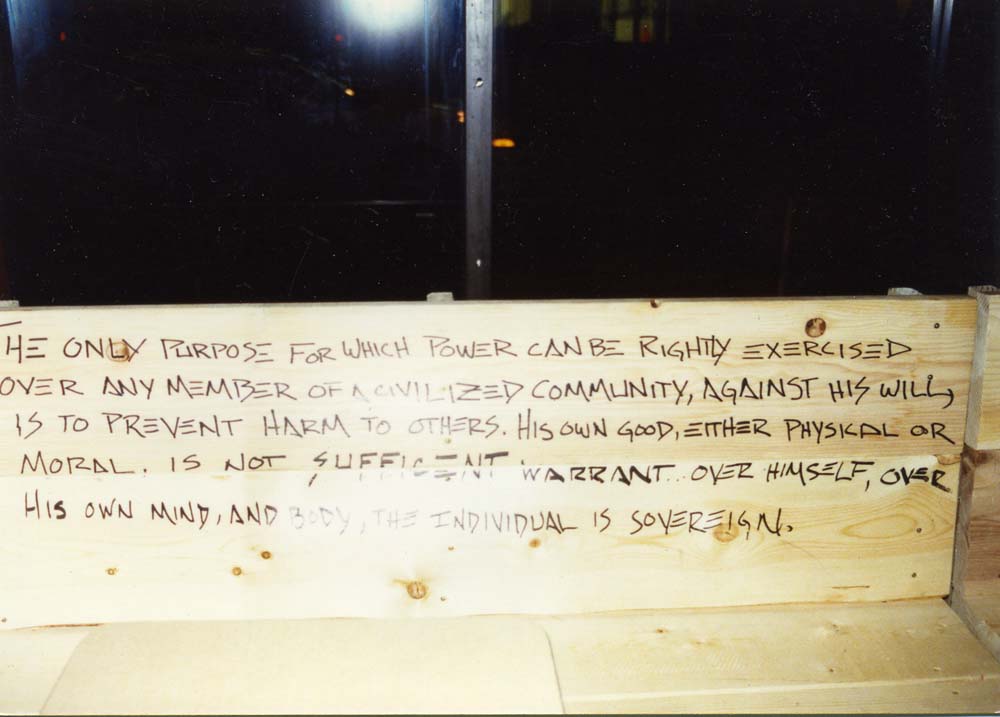 THE ONLY PURPOSE FOR WHICH POWER CAN BE RIGHTLY EXERCISED
OVER ANY MEMBER OF A CIVILIZED COMMUNITY, AGAINST HIS WILL,
IS TO PREVENT HARM TO OTHERS. HIS OWN GOOD, EITHER PHYSICAL OR
MORAL. IS NOT SUFFICENT WARRANT... OVER HIMSELF, OVER
HIS OWN MIND, AND BODY, THE INDIVIDUAL IS SOVEREIGN.